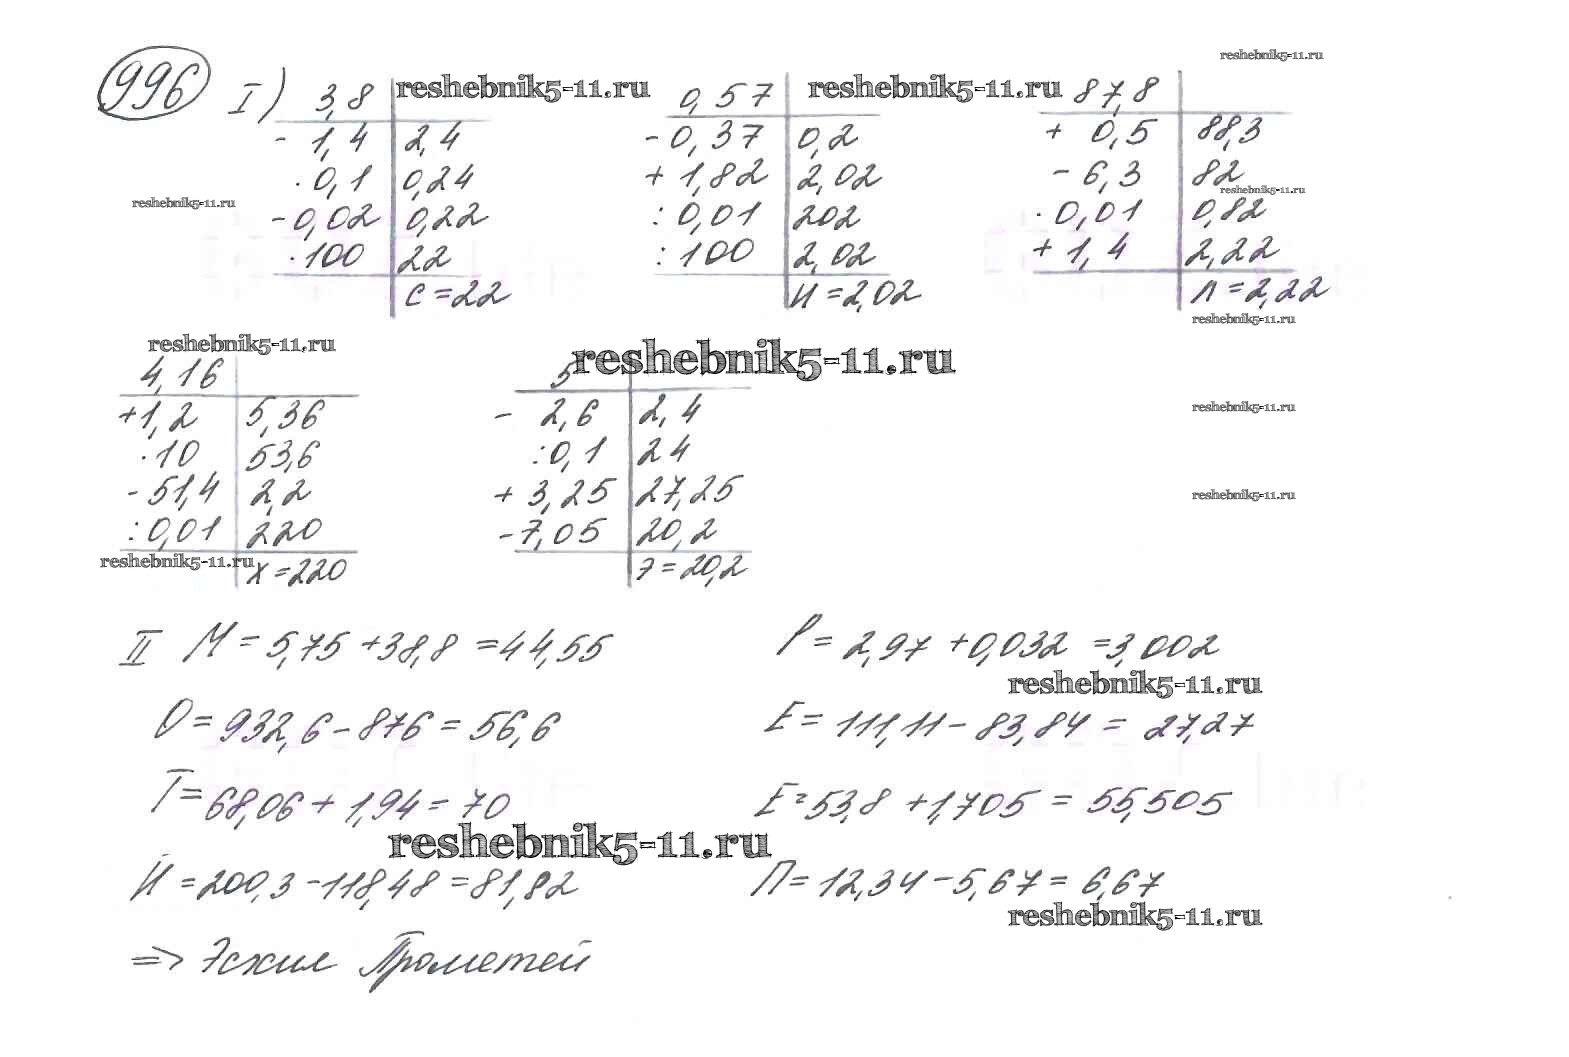 reshebnik5-11.ru
996 I) 3,8 reshebnik5-11.ru 0,57 reshebnik5-11.ru 87,8
- 1,4 2,4 - 0,37 0,2 + 0,5 88,3
· 0,1 0,24 + 1,82 2,02 - 6,3 82
reshebnik5-11.ru reshebnik5-11.ru
- 0,02 0,22 : 0,01 202 · 0,01 0,82
· 100 22 : 100 2,02 + 1,4 2,22
С = 22 И = 2,02 Л = 2,22
reshebnik5-11.ru
reshebnik5-11.ru reshebnik5-11.ru
4,16 5
+ 1,2 5,36 - 2,6 2,4 reshebnik5-11.ru
· 10 53,6 : 0,1 24
- 51,4 2,2 + 3,25 27,25 reshebnik5-11.ru
: 0,01 220 - 7,05 20,2
reshebnik5-11.ru Х = 220 Э = 20,2
II М = 5,75 + 38,8 = 44,55 Р = 2,97 + 0,032 = 3,002
reshebnik5-11.ru
О = 932,6 - 876 = 56,6 Е = 111,11 - 83,84 = 27,27
Т = 68,06 + 1,94 = 70 Е = 53,8 + 1,705 = 55,505
reshebnik5-11.ru
Й = 200,3 - 118,48 = 81,82 П = 12,34 - 5,67 = 6,67
reshebnik5-11.ru
=> Эсхил Прометей